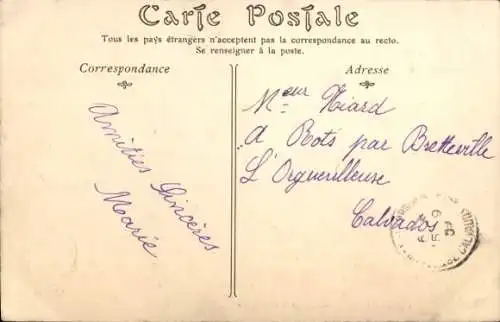 Carte Postale
Tous les pays étrangers n'acceptent pas la correspondance au recto.
Se renseigner à la poste.
Correspondance
Amitiés Sincères
Marie
Adresse
Meur Hiard
A Rots par Bretteville
L'Orgueilleuse
Calvados